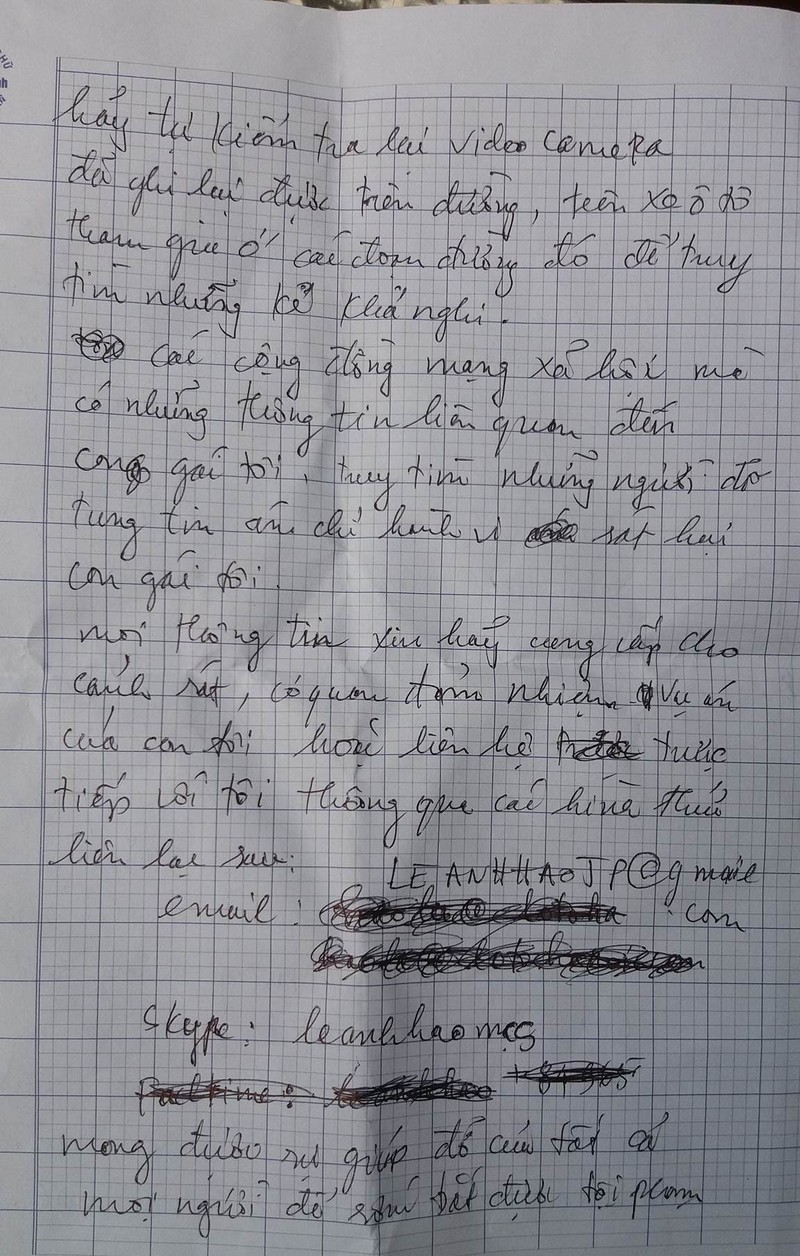 hãy tự kiểm tra lại video camera
đã ghi lại được trên đường, trên xe ô tô
tham gia ở các đoạn đường đó để truy
tìm những kẻ khả nghi.
các cộng đồng mạng xã hội mà
có những thông tin liên quan đến
con gái tôi, truy tìm những người đã
tung tin ám chỉ hành vi sát hại
con gái tôi.
mọi thông tin xin hãy cung cấp cho
cảnh sát, cơ quan đảm nhiệm vụ án
của con tôi hoặc liên hệ trực
tiếp với tôi thông qua các hình thức
liên lạc sau:
LEANHHAOJP@gmail
email : .com
Skype: leanhhaomcs
mong được sự giúp đỡ của tất cả
mọi người để sớm bắt được tội phạm